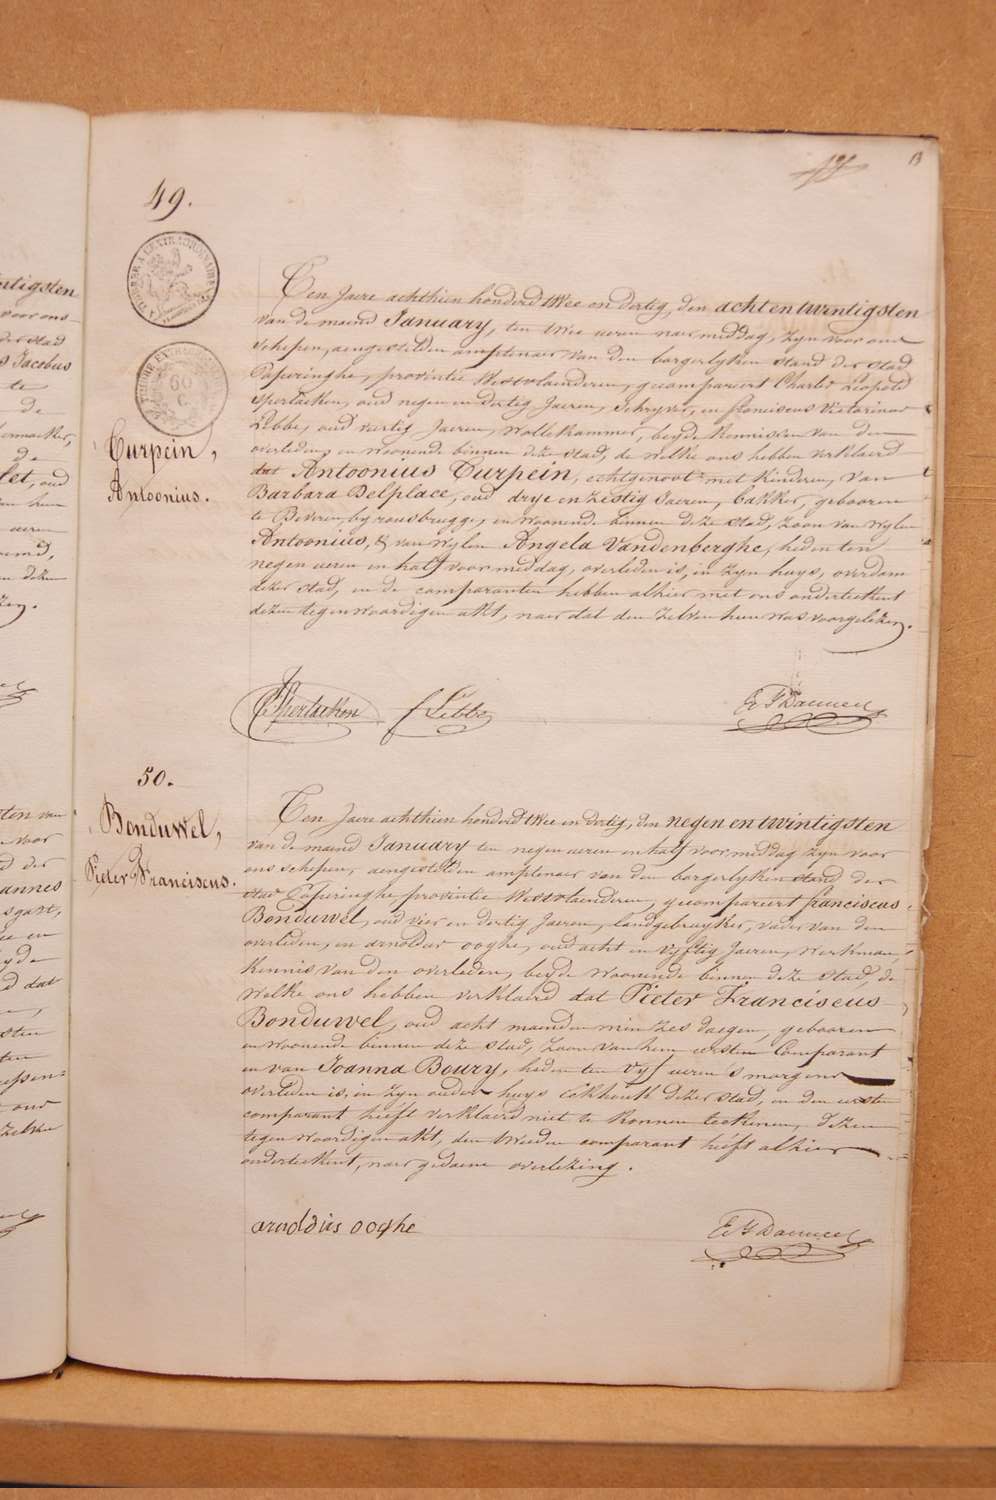 13
49.
TIMBRE A L'EXTRAORDINAIRE
TIMBRE EXTRAORDINAIRE
60
C
Turpein,
Antoonius.
Ten Jaere achthien honderd twee en dertig, den acht en twintigsten
van de maend January, ten twee ueren naer middag, zyn voor ons
Schepen, aengestelden amptenaer van den borgerlyken stand der stad
Poperinghe, provintie Westvlaenderen, gecompariert Charles Léopold
Spertacken, oud negen en dertig Jaeren, Schryver, en franciscus Victorinus
Lebbe, oud veertig Jaeren, Wollekammer, beyde Kennissen van den
overleden, en woonende binnen deze stad, de welke ons hebben verklaerd
dat Antoonius Turpein, echtgenoot met Kinderen, van
Barbara Delplace, oud drye en zestig Jaeren, bakker, gebooren
te Beveren by rousbrugge, en woonende binnen deze stad, zoon van wylen
Antoonius, & van wylen Angela Vandenberghe, heden ten
negen ueren en half voormiddag, overleden is, in zyn huys, overdam
dezer stad, en de comparanten hebben alhier met ons onderteekent
dezen tegenwoordigen akt, naer dat den zelven hun was voorgelezen.
Spertacken f Lebbe
50.
Bonduwel,
Pieter Franciscus.
Ten Jaere achthien honderd twee en dertig, den negen en twintigsten
van de maend January ten negen ueren en half voormiddag zyn voor
ons schepen, aengestelden amptenaer van den borgerlyken stand der
stad Poperinghe provintie Westvlaenderen, gecompariert franciscus
Bonduwel, oud vier en dertig Jaeren, landgebruyker, vader van den
overleden, en arnoldus ooghe, oud acht en vyftig Jaeren, werkman,
Kennis van den overleden, beyde woonende binnen deze stad, de
welke ons hebben verklaerd dat Pieter Franciscus
Bonduwel, oud acht maenden min zes daegen, gebooren
en woonende binnen deze stad, zoon van hun eersten Comparant
en van Joanna Boury, heden ten vyf ueren 's morgens
overleden is, in zyn ouders huys Eekhouk dezer stad, en den eersten
comparant heeft verklaerd niet te konnen teekenen, dezen
tegenwoordigen akt, den tweeden comparant heeft alhier
onderteekent, naer gedaene overlezing.
arnoldus ooghe